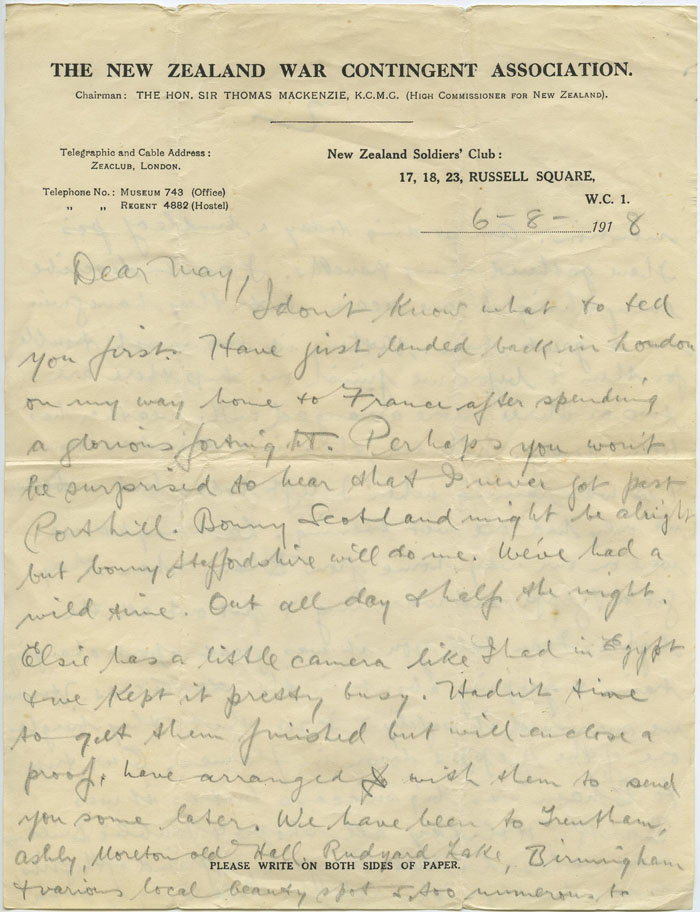 THE NEW ZEALAND WAR CONTINGENT ASSOCIATION.
Chairman: THE HON. SIR THOMAS MACKENZIE, K.C.M.G. (HIGH COMMISSIONER FOR NEW ZEALAND).
Telegraphic and Cable Address:
ZEACLUB, LONDON.
Telephone No.: MUSEUM 743 (Office)
„ „ REGENT 4882 (Hostel)
New Zealand Soldiers' Club:
17, 18, 23, RUSSELL SQUARE,
W.C. 1.
6-8- 1918
Dear May,
I don't know what to tell
you first. Have just landed back in London
on my way home to France after spending
a glorious fortnight. Perhaps you won't
be surprised to hear that I never got past
Porthill. Bonny Scotland might be alright
but bonny Staffordshire will do me. We've had a
wild time. Out all day & half the night.
Elsie has a little camera like I had in Egypt
& we kept it pretty busy. Hadn't time
to get them finished but will enclose a
proof, have arranged with them to send
you some later. We have been to Trentham,
Ashly, Moreton old Hall, Rudyard Lake, Birmingham
& various local beauty spots too numerous to
PLEASE WRITE ON BOTH SIDES OF PAPER.